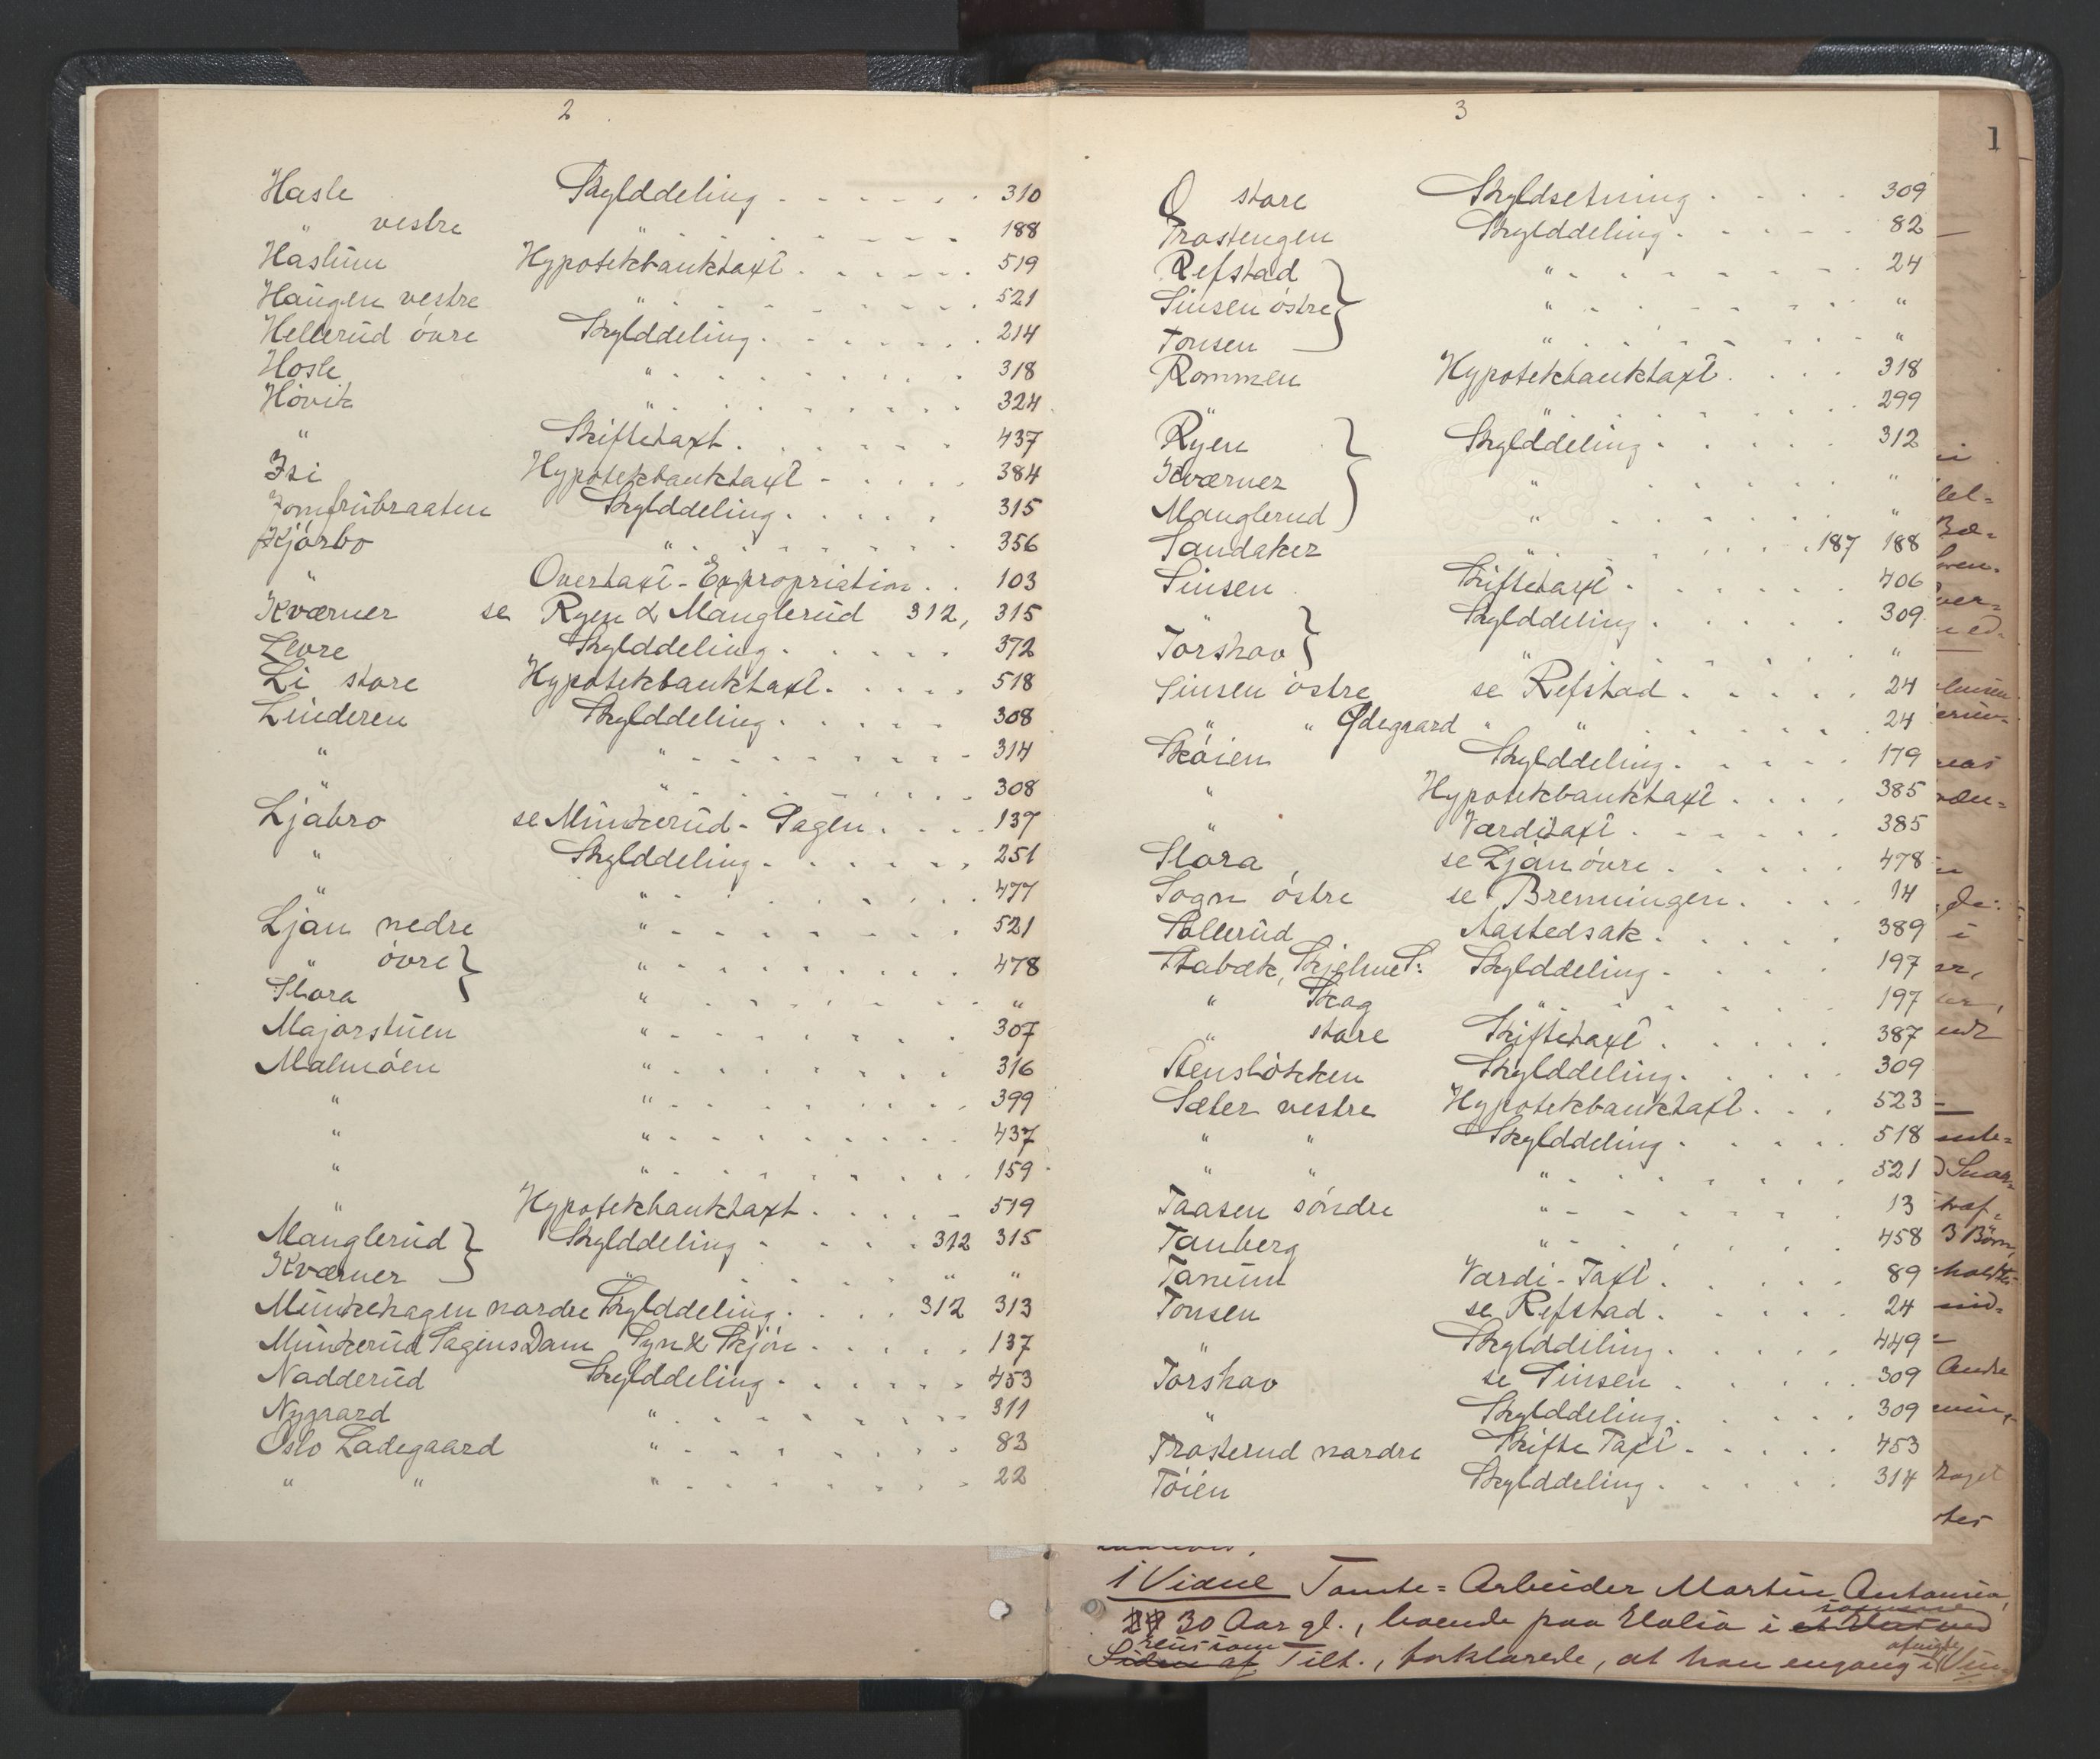 2
Hasle Skylddeling . . . . . . 310
" vestre " . . . . . . . . 188
Haslum Hypotekbanktaxt . . . . . 519
Haugen vestre " . . . . . . . . 521
Hellerud övre Skylddeling . . . . . . . 214
Hosle " . . . . . . . . . 318
Hövik " . . . . . . . . . 324
" Skiftetaxt . . . . . . . 437
Isi Hypotekbanktaxt - . . . . 384
Jomfrubraaten Skylddeling . . . . . 315
Kjörbo " . . . . . . . . . 356
" Overtaxt - Expropriation . . 103
Kværner se Ryen & Manglerud 312, 315
Levre Skylddeling . . . . . . 372
Li store Hypotekbanktaxt . . . . . 518
Linderen Skylddeling . . . . . 308
" " . . . . . . . . . 314
" " . . . . . . . . . 308
Ljabro se Munkerud - Sagen . . . . 137
" Skylddeling . . . . . . 251
" " . . . . . . . . . 477
Ljan nedre " . . . . . . . . 521
" övre } " . . . . . . . . . 478
Stora " . . . . . . . . "
Majorstuen " . . . . . . . . 307
Malmöen " . . . . . . . . . 316
" " . . . . . . . . . 399
" " . . . . . . . . . 437
" " . . . . . . . . . 159
" Hypotekbanktaxt . . . . . 519
Manglerud } Skylddeling . . . . 312 315
Kværner " . . . . . " "
Munkehagen nordre Skylddeling . . . . 312 313
Munkerud Sagens Dam Syn & Skjön . . . . . 137
Nadderud Skylddeling . . . . . . 453
Nygaard " . . . . . . . . . 311
Oslo Ladegaard " . . . . . . . . 83
" " " . . . . . . . . 22
3
1
Ø store Skyldsetning . . . . 309
Trostengen Skylddeling . . . . . 82
Refstad } " . . . . . . . . 24
Sinsen östre " . . . . . . . . "
Tonsen " . . . . . . . . "
Rommen Hypotekbanktaxt . . . . 318
" " . . . . . . . . 299
Ryen } Skylddeling . . . . . 312
Kværner " . . . . . . "
Manglerud " . . . . . . "
Sandaker " . . . . . . 187 188
Sinsen Skiftetaxt . . . . . . 406
" } Skylddeling . . . . . 309
Torshov " . . . . . . "
Sinsen östre se Refstad . . . . . 24
" " Ødegaard " " . . . . . 24
Sköien Skylddeling . . . . . 179
" Hypotekbanktaxt . . . . 385
" Værditaxt . . . . . . 385
Stora se Ljan övre . . . . . 478
Sogn östre se Brenningen . . . . 14
Sollerud Aastedsak . . . . . 389
Stabæk, Skjelme S: Skylddeling . . . . 197
" Skog " . . . . . . 197
" store Skiftetaxt . . . . . 387
Stenslökken Skylddeling . . . . . 309
Sæter vestre Hypotekbanktaxt . . . 523
" " Skylddeling . . . . . 518
" " " . . . . . . . 521
Taasen söndre " - . . . . . 13
Tanberg " . . . . . . . 458
Tanum Værdi-Taxt . . . . . 89
Tonsen se Refstad . . . . . 24
" Skylddeling . . . . . 449
Torshov se Sinsen . . . . . 309
" Skylddeling . . . . . 309
Trosterud nordre Skifte Taxt . . . . . 453
Töien Skylddeling . . . . . 314
1 Vidne Tomte = Arbeider Martin
30 Aar gl., boende paa i
Tilt., forklarede, at han engang i